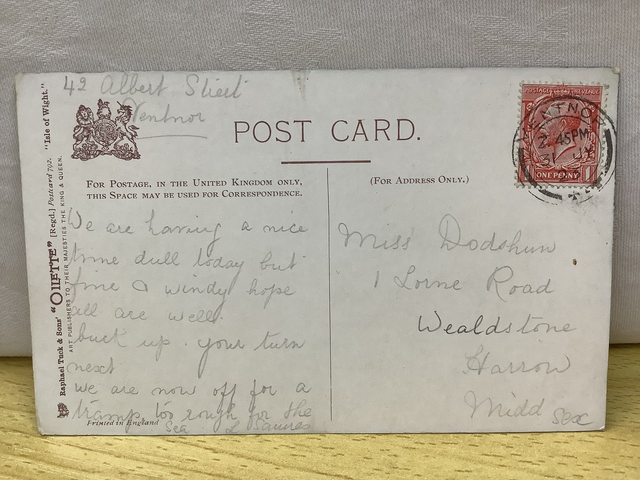 42 Albert Street
Ventnor
POST CARD.
FOR POSTAGE, IN THE UNITED KINGDOM ONLY,
THIS SPACE MAY BE USED FOR CORRESPONDENCE.
(FOR ADDRESS ONLY.)
We are having a nice
time dull today but
fine & windy hope
all are well.
buck up. your turn
next
we are now off for a
tramp too rough for the
Sea
Miss Dodshun
1 Lorne Road
Wealdstone
Harrow
Middsex
Printed in England
Raphael Tuck & Sons' "OILETTE" [Regd.] Postcard 792. "Isle of Wight."
ART PUBLISHERS TO THEIR MAJESTIES THE KING & QUEEN.
POSTAGE REVENUE
ONE PENNY
VENTNOR
2.45PM
31